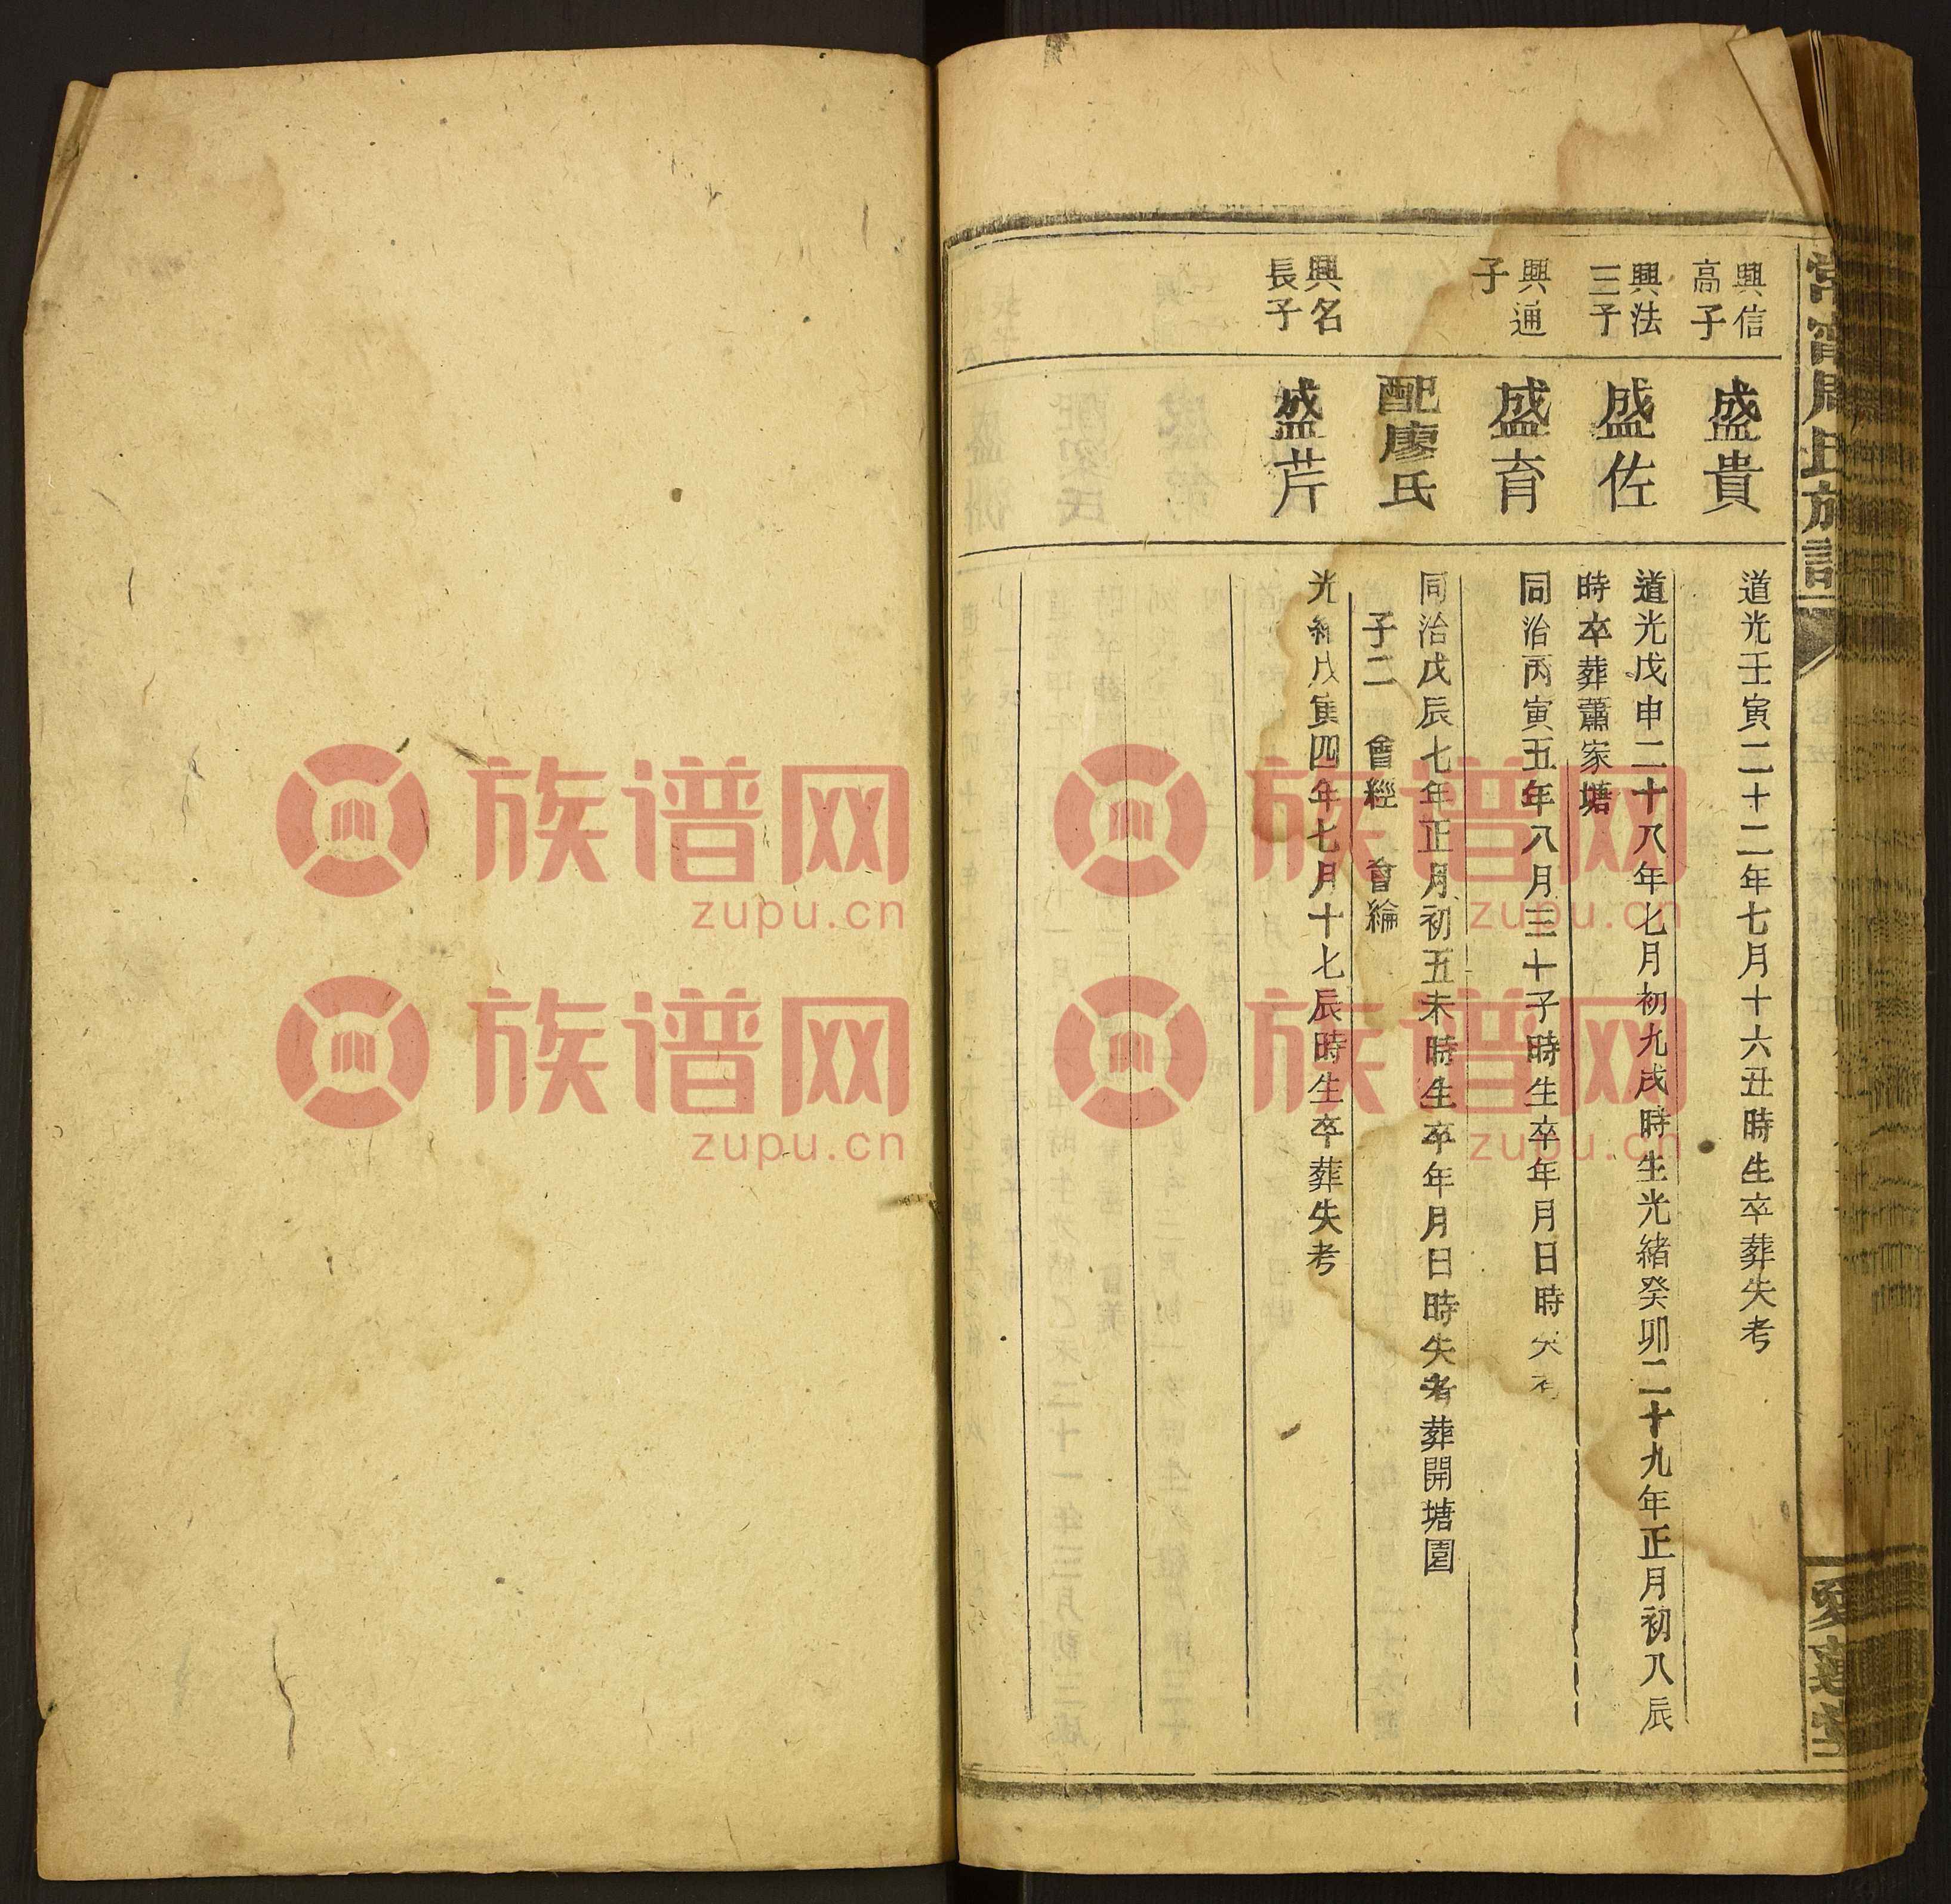 興信
高子
盛貴
道光壬寅二十二年七月十六丑時生卒葬失考
興法
三子
盛佐
道光戊申二十八年七月初九戌時生光緒癸卯二十九年正月初八辰
時卒葬蕭家塘
興通
子
盛育
同治丙寅五年八月三十子時生卒年月日時失
配廖氏
同治戊辰七年正月初五未時生卒年月日時失考葬開塘園
子二 會經 會綸
興名
長子
盛芹
光緒 四年七月十七辰時生卒葬失考
常寧周氏族譜
愛蓮堂
族谱网
zupu.cn
族谱网
zupu.cn
族谱网
zupu.cn
族谱网
zupu.cn